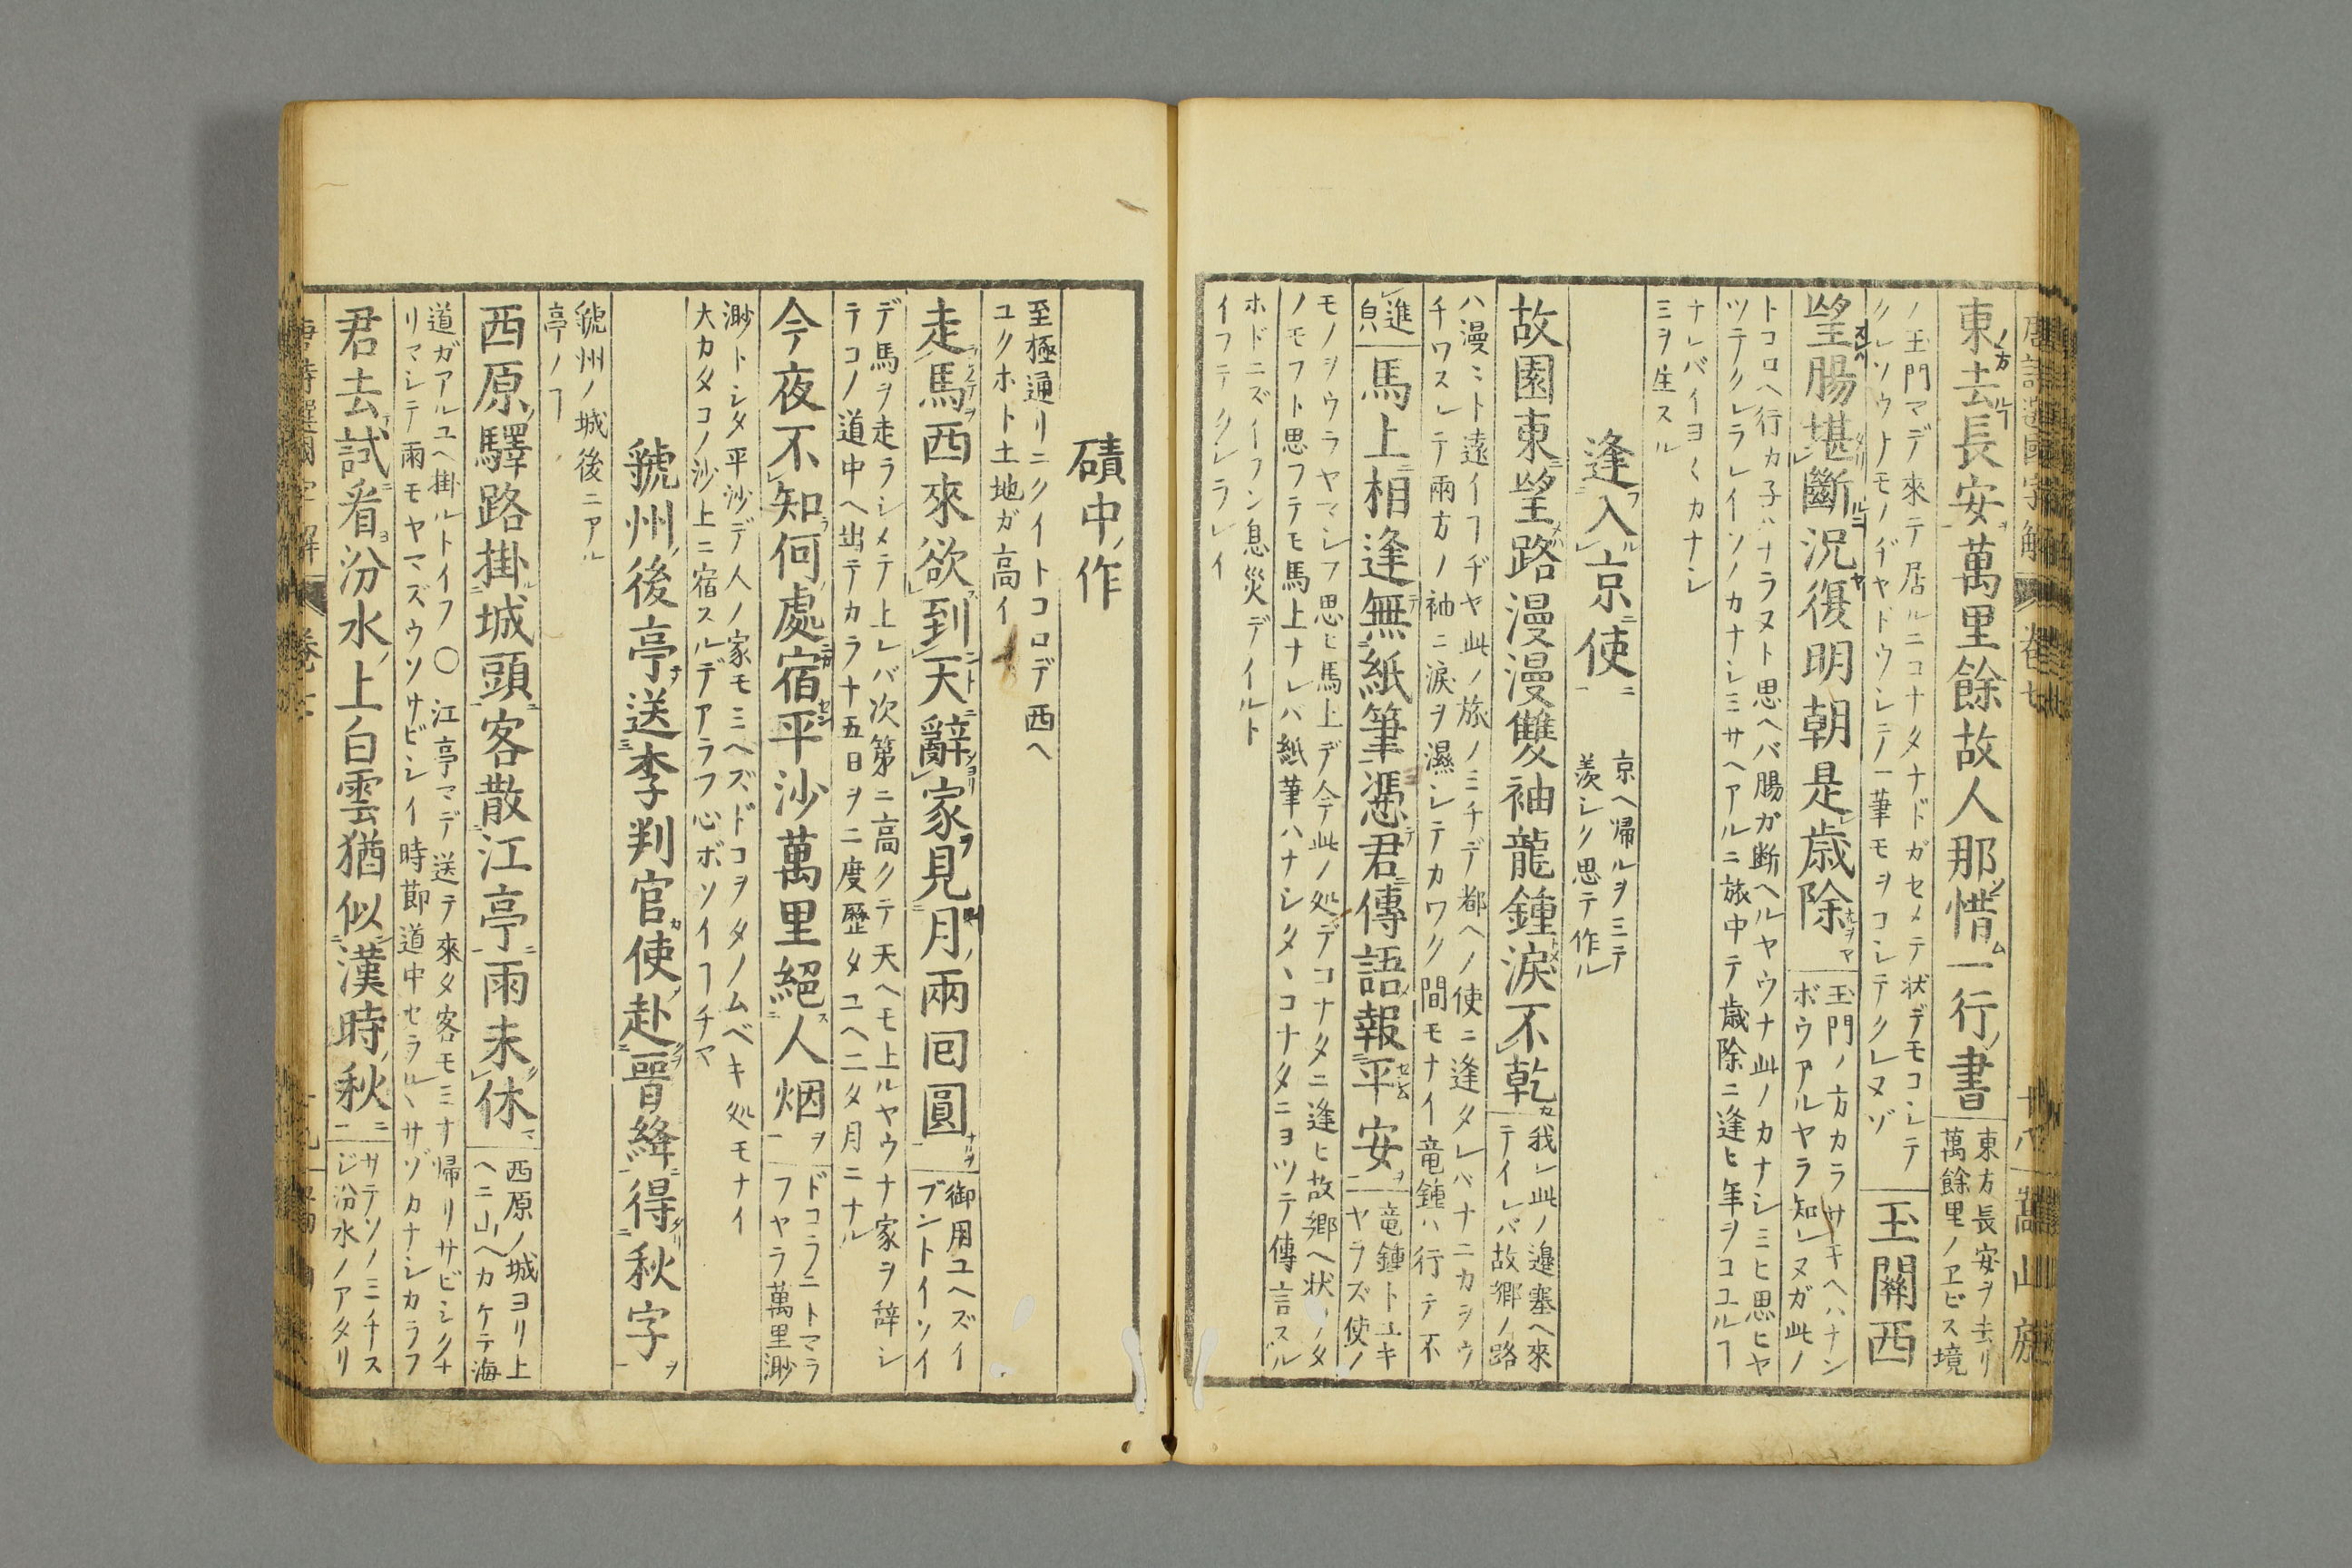 唐詩選國字解 卷七 十八 嵩山房
東去長安萬里餘故人那惜一行書
東方長安ヲ去リ
萬餘里ノヱビス境
ノ玉門マデ來テ居ルニコナタナドガセメテ状デモコシテ
クレソウナモノヂヤドウシテ一筆モヲコシテクレヌゾ
玉關西
望腸堪斷況復明朝是歳除
玉門ノ方カラサキヘハナン
ボウアルヤラ知レヌガ此ノ
トコロヘ行カ子ハナラヌト思ヘバ腸ガ断ヘルヤウナ此ノカナシミヒ思ヒヤ
ツテクレラレイソノカナシミサヘアルニ旅中テ歳除ニ逢ヒ年ヲコユルヿ
ナレバイヨ〱カナシ
ミヲ生スル
逢入京使
京ヘ帰ルヲミテ
羨シク思テ作ル
故園東望路漫漫雙袖龍鍾淚不乾
我レ此ノ邉塞ヘ來
テイレバ故郷ノ路
ハ漫〻ト遠イヿヂヤ此ノ旅ノミチデ都ヘノ使ニ逢タレバナニカヲウ
チワスレテ兩方ノ袖ニ涙ヲ濕シテカワク間モナイ竜鍾ハ行テ不
進
皃
馬上相逢無紙筆憑君傳語報平安
竜鍾トユキ
ヤラズ使ノ
モノヲウラヤマシフ思ヒ馬上デ今此ノ処デコナタニ逢ヒ故郷ヘ状ノタ
ノモフト思フテモ馬上ナレバ紙筆ハナシタヽコナタニヨツテ傳言スル
ホドニズイフン息災デイルト
イフテクレラレイ
磧中作
至極通リニクイトコロデ西ヘ
ユクホト土地ガ高イ
走馬西來欲到天辭家見月兩回圓
御用ユヘズイ
ブントイソイ
デ馬ヲ走ラシメテ上レバ次第ニ高クテ天ヘモ上ルヤウナ家ヲ辞シ
テコノ道中ヘ出テカラ十五日ヲニ度歴タユヘ二タ月ニナル
今夜不知何處宿平沙萬里絕人烟
ドコラニトマラ
フヤラ萬里渺
渺トシタ平沙デ人ノ家モミヘズドコヲタノムベキ処モナイ
大カタコノ沙上ニ宿スルデアラフ心ボソイヿヂヤ
虢州後亭送李判官使赴晉絳得秋字
虢州ノ城後ニアル
亭ノヿ
西原驛路掛城頭客散江亭雨未休
西原ノ城ヨリ上
ヘニ山ヘカケテ海
道ガアルユヘ掛ルトイフ〇江亭マデ送テ來タ客モミナ帰リサビシクナ
リマシテ雨モヤマズウソサビシイ時節道中セラルヽサゾカナシカラフ
君去試看汾水上白雲猶似漢時秋
サテソノミチス
ジ汾水ノアタリ